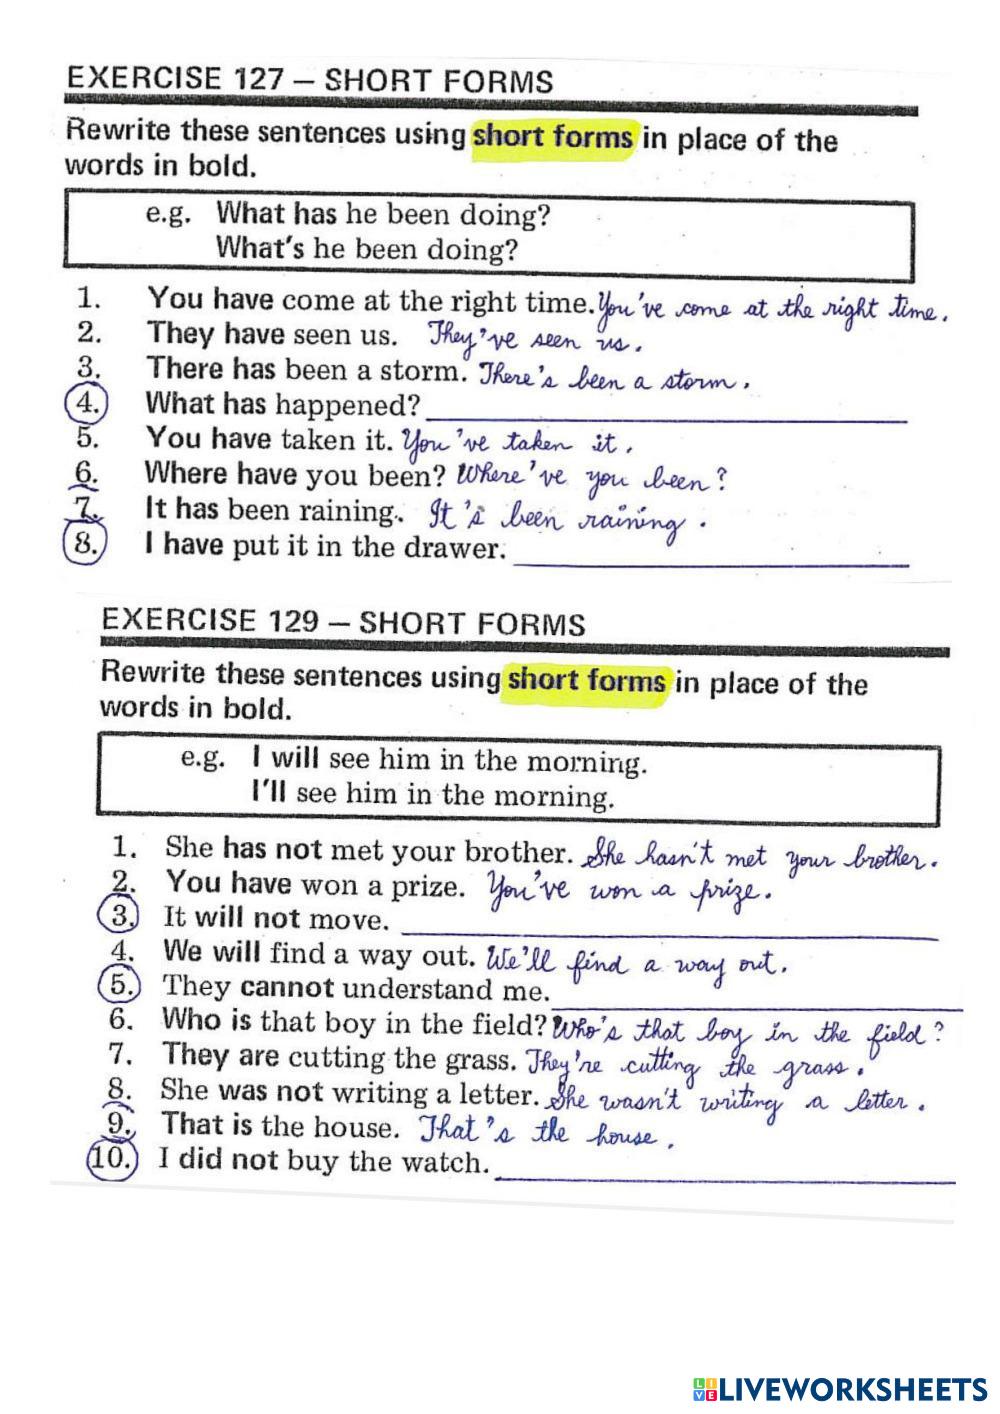 EXERCISE 127 – SHORT FORMS
Rewrite these sentences using short forms in place of the
words in bold.
e.g. What has he been doing?
What's he been doing?
1. You have come at the right time. You've come at the right time.
2. They have seen us. They've seen us.
3. There has been a storm. There's been a storm.
4. What has happened?
5. You have taken it. You've taken it.
6. Where have you been? Where've you been?
7. It has been raining. It's been raining.
8. I have put it in the drawer.
EXERCISE 129 – SHORT FORMS
Rewrite these sentences using short forms in place of the
words in bold.
e.g. I will see him in the morning.
I'll see him in the morning.
1. She has not met your brother. She hasn't met your brother.
2. You have won a prize. You've won a prize.
3. It will not move.
4. We will find a way out. We'll find a way out.
5. They cannot understand me.
6. Who is that boy in the field? Who's that boy in the field?
7. They are cutting the grass. They're cutting the grass.
8. She was not writing a letter. She wasn't writing a letter.
9. That is the house. That's the house.
10. I did not buy the watch.
LIVE LIVEWORKSHEETS